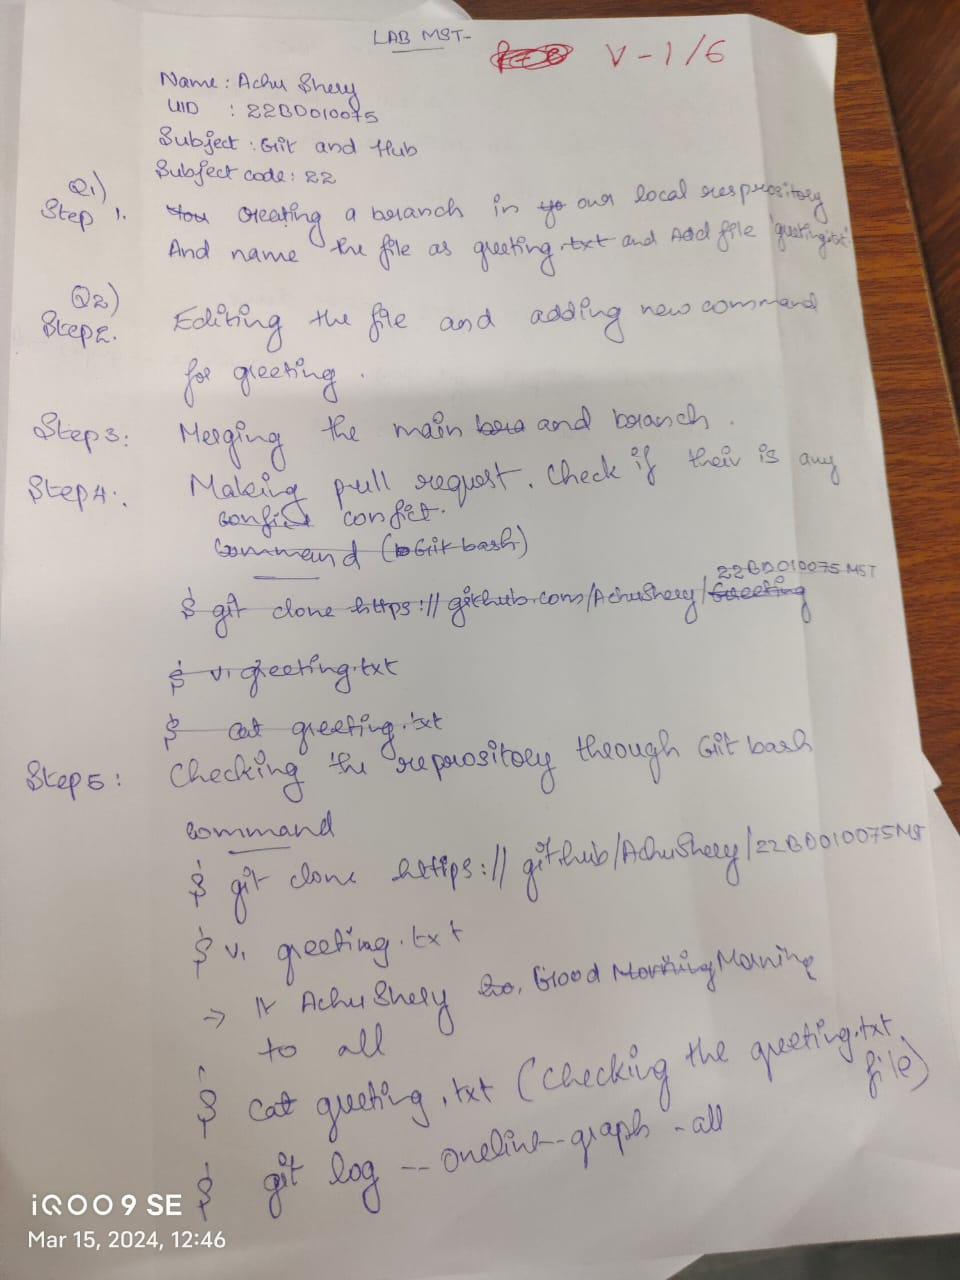 LAB MST-
V-1/6
Name : Achu Shery
UID : 22BDO10075
Subject : Git and Hub
Subject code : 22
Q1)
Step 1. You creating a branch in yo our local respreository
And name the file as greeting.txt and Add file 'greeting.txt'
Q2)
Step 2. Editing the file and adding new command
for greeting.
Step 3: Merging the main bra and branch.
Step 4:. Making pull request. Check if their is any
confict.
Command (Git bash)
22BDO10075 MST
$ git clone https://github.com/AchuShery/Greeting
$ vi greeting.txt
$ cat greeting.txt
Step 5: Checking the reprository through Git bash
command
$ git clone https://github/AchuShery/22BDO10075MST
$ vi greeting.txt
→ Achu Shery Good Morning Morning
to all
$ cat greeting.txt (checking the greeting.txt
file)
$ git log --oneline--graph -all
iQOO 9 SE
Mar 15, 2024, 12:46